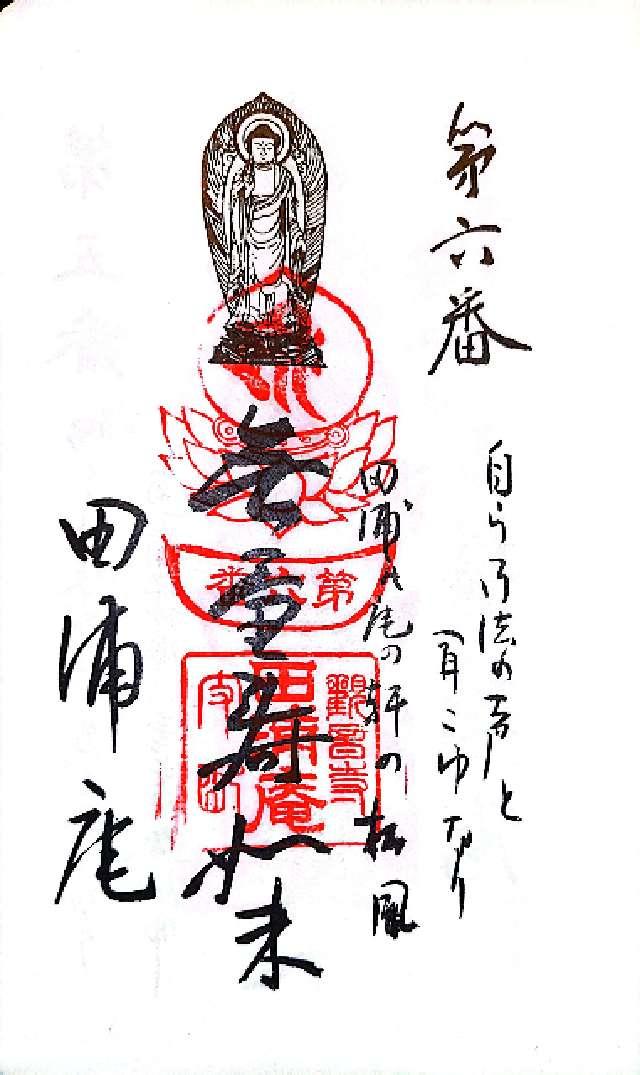 第六番
自ら御法の声と
聞こゆなり
田浦の庵の軒の松風
無量寿如来
第六番
観音寺
田浦庵
田浦庵